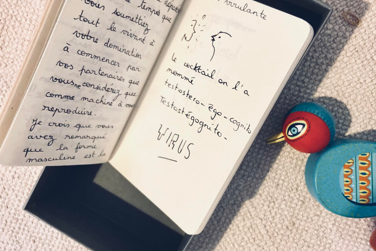 vous soumettiez
tout le vivant à
votre domination
à commencer par
vos partenaires que
vous considérez que
comme machine à
reproduire.
Je crois que vous
avez remarqué
que la forme
masculine est
virulante
le cocktail on l'a
nommé
testostero-ego-cognito
testostégognito.
VIRUS